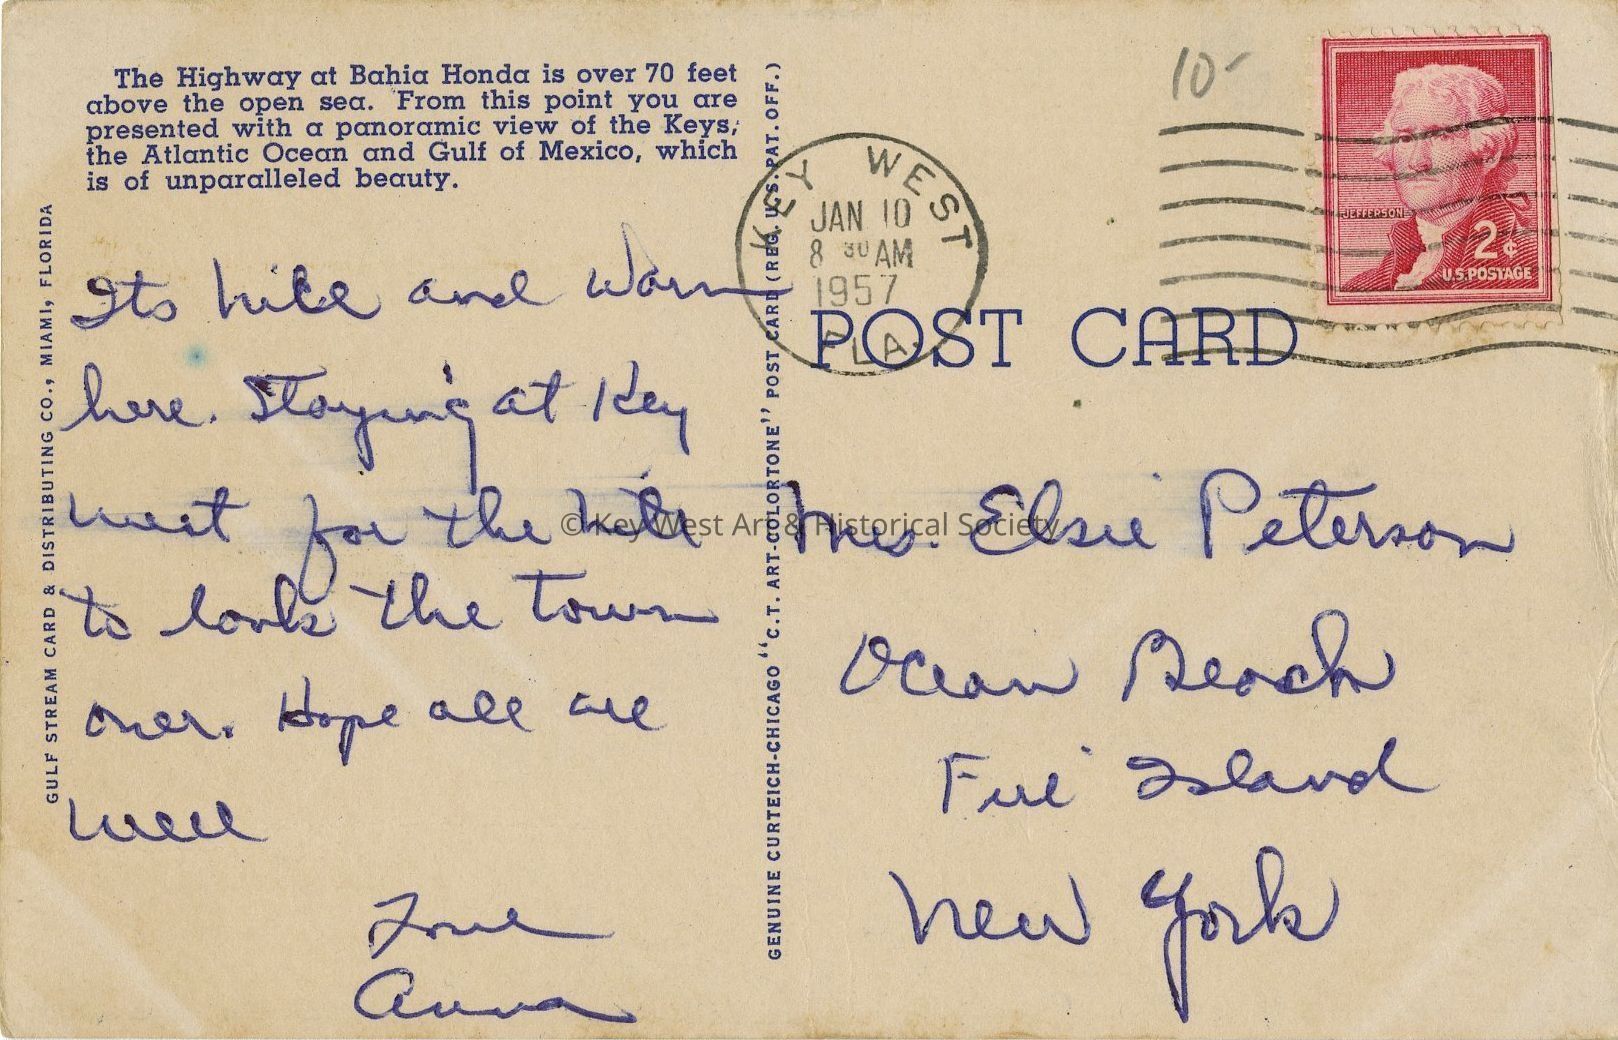 The Highway at Bahia Honda is over 70 feet
above the open sea. From this point you are
presented with a panoramic view of the Keys,
the Atlantic Ocean and Gulf of Mexico, which
is of unparalleled beauty.
GULF STREAM CARD & DISTRIBUTING CO., MIAMI, FLORIDA
Its nice and warm
here. Staying at Key
west for the nite
to look the town
over. Hope all are
well
Love
Anna
GENUINE CURTEICH-CHICAGO "C.T. ART-COLORTONE" POST CARD (REG. U.S. PAT. OFF.)
10-
KEY WEST
JAN 10
8 30 AM
1957
FLA.
JEFFERSON
2¢
U.S. POSTAGE
POST CARD
Mrs. Elsie Peterson
Ocean Beach
Fire Island
New York
© Key West Art & Historical Society